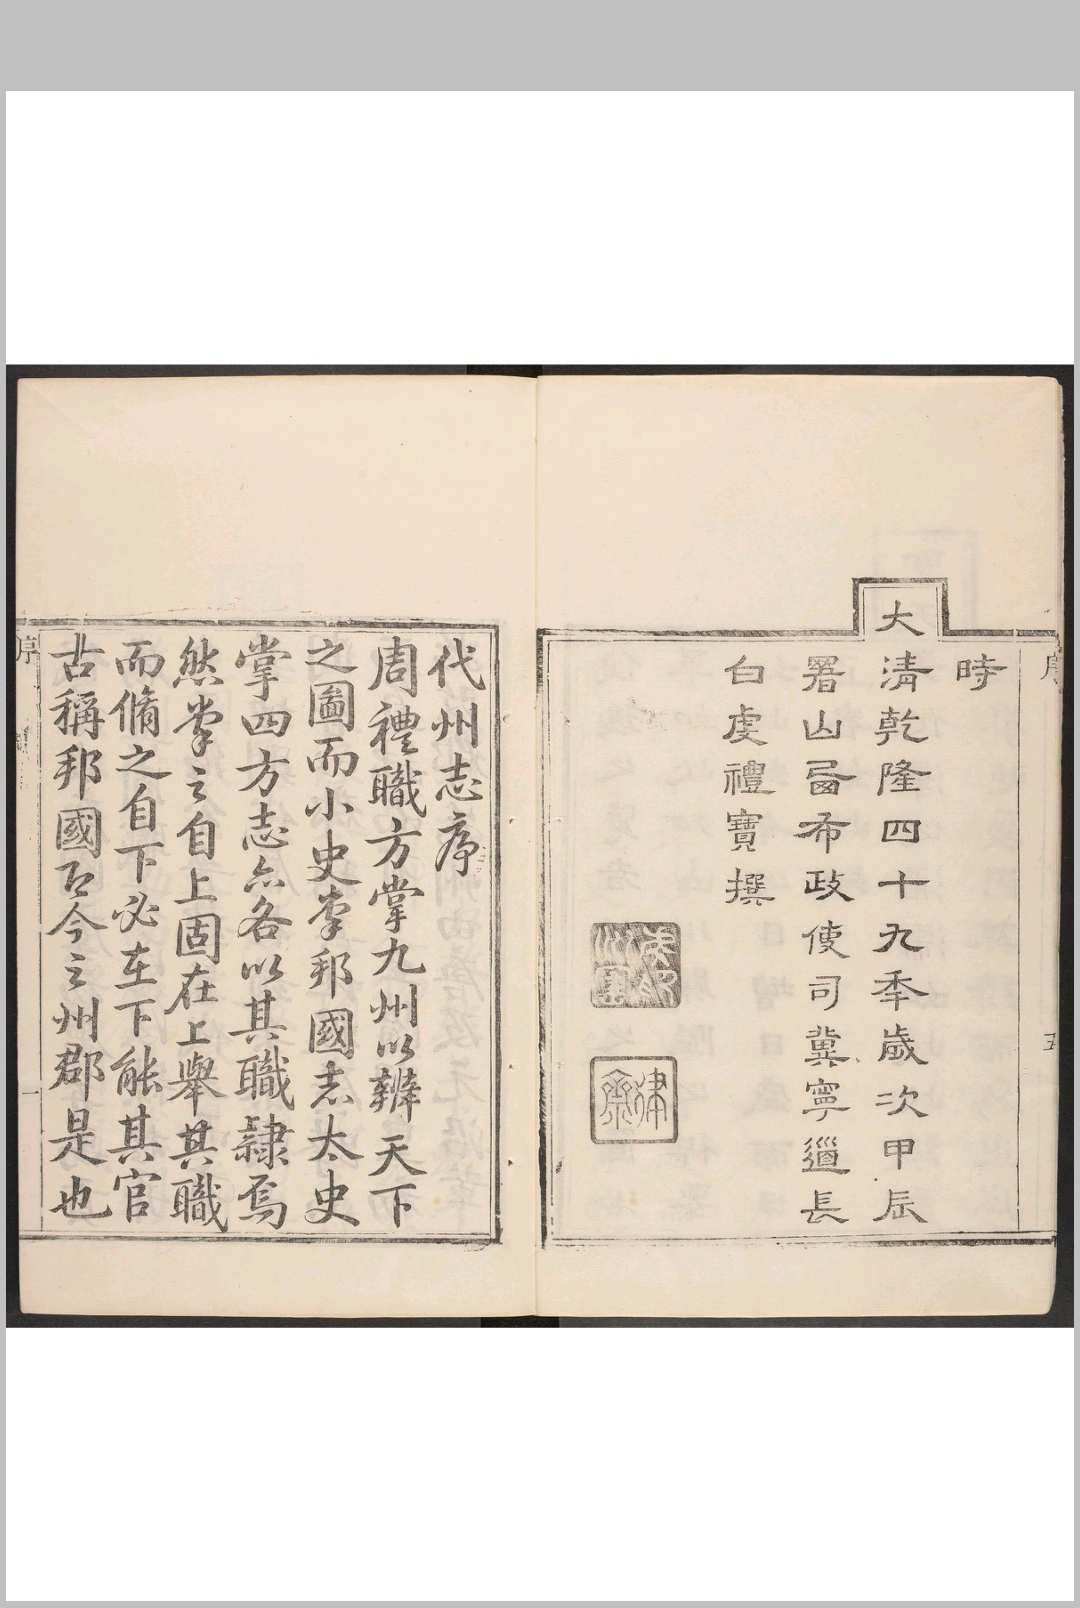 序
五
時
大
清乾隆四十九年歲次甲辰
署山西布政使司冀寧道長
白虔禮寶撰
代州志序
周禮職方掌九州以辨天下
之圖而小史掌邦國志太史
掌四方志亦各以其職隸焉
然掌之自上固在上舉其職
而脩之自下必在下能其官
古稱邦國即今之州郡是也
序
一